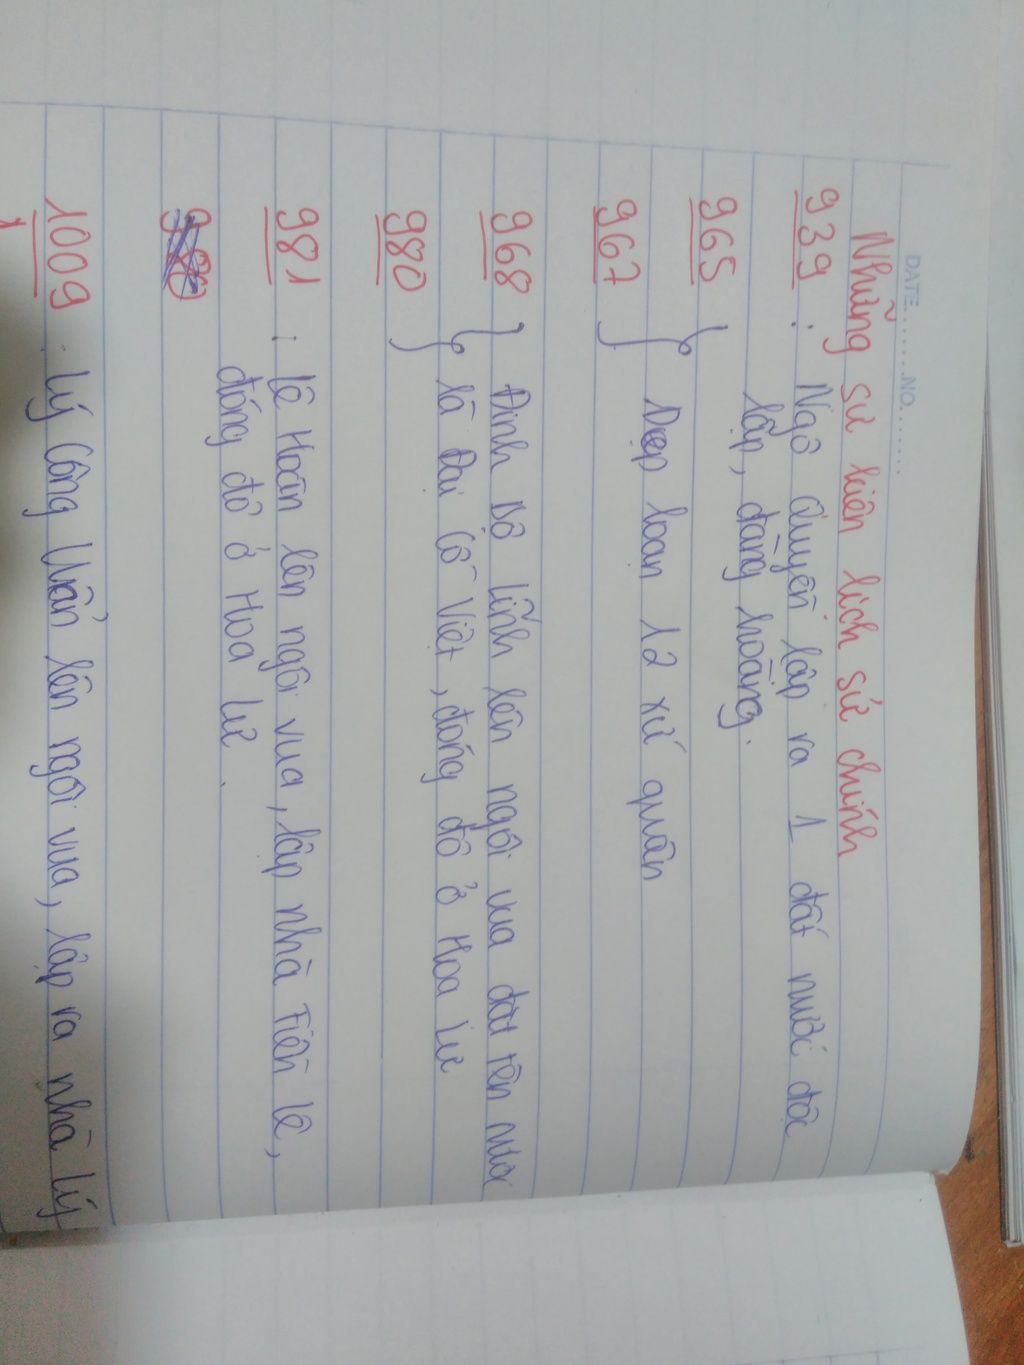 DATE........NO........
Những sự kiện lịch sử chính
939 : Ngô Quyền lập ra 1 đất nước độc
lập, đàng hoàng.
965
967 } Dẹp loạn 12 xứ quân
968 } Đinh Bộ Lĩnh lên ngôi vua đặt tên nước
980 } là Đại Cồ Việt, đóng đô ở Hoa Lư
981 : Lê Hoàn lên ngôi vua, lập nhà Tiền Lê,
đóng đô ở Hoa Lư.
1009 : Lý Công Uẩn lên ngôi vua, lập ra nhà Lý